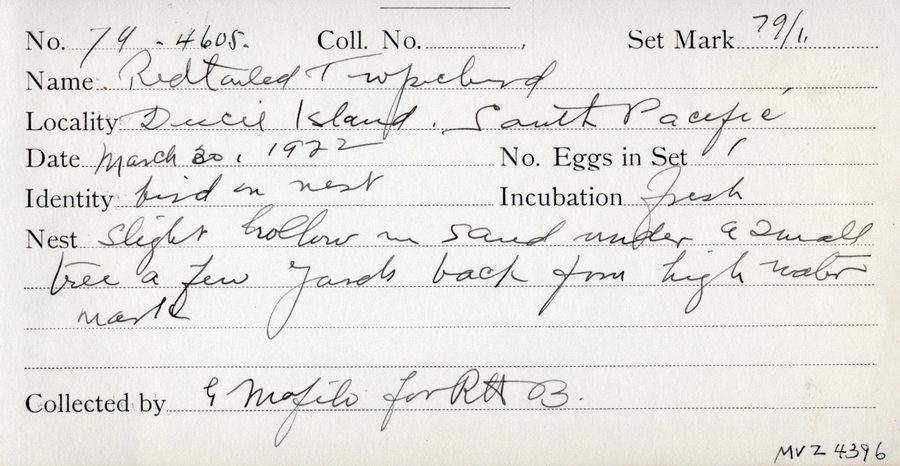 No. 79-4605. Coll. No. Set Mark 79/1,
Name Redtailed Tropicbird
Locality Ducie Island. South Pacific
Date March 30, 1922 No. Eggs in Set 1
Identity bird on nest Incubation fresh
Nest slight hollow in sand under a small
tree a few yards back from high water
mark
Collected by for RHB.
MVZ 4396